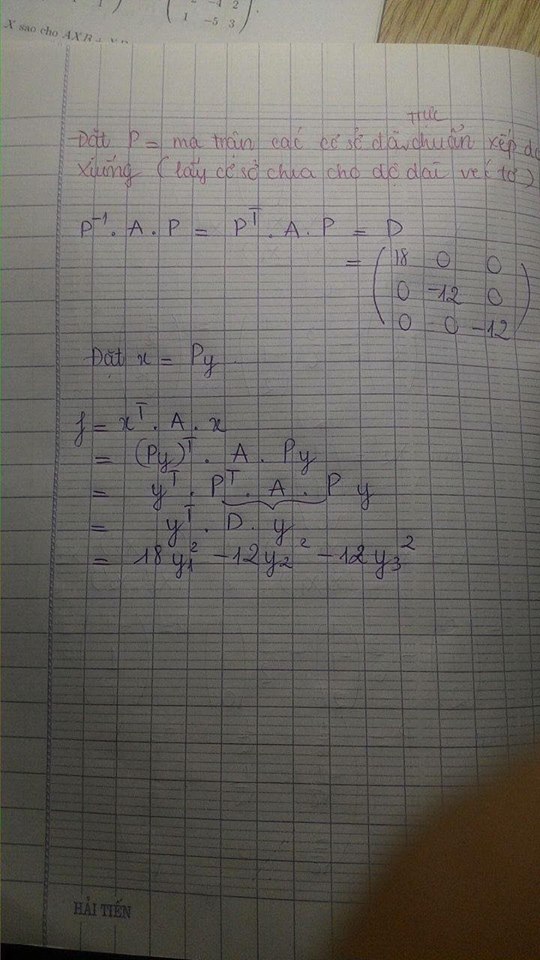 1 -5 3
X sao cho AXB
Trực
Đặt P = ma trận các cơ sở đã chuẩn xếp
xuống (lấy cơ sở chia cho độ dài vectơ)
P⁻¹ . A . P = Pᵀ . A . P = D
= ( 18 0 0
0 -12 0
0 0 -12 )
Đặt x = Py
f = xᵀ . A . x
= (Py)ᵀ . A . Py
= yᵀ . Pᵀ . A . P y
= yᵀ . D . y
= 18y₁² - 12y₂² - 12y₃²
HẢI TIẾN